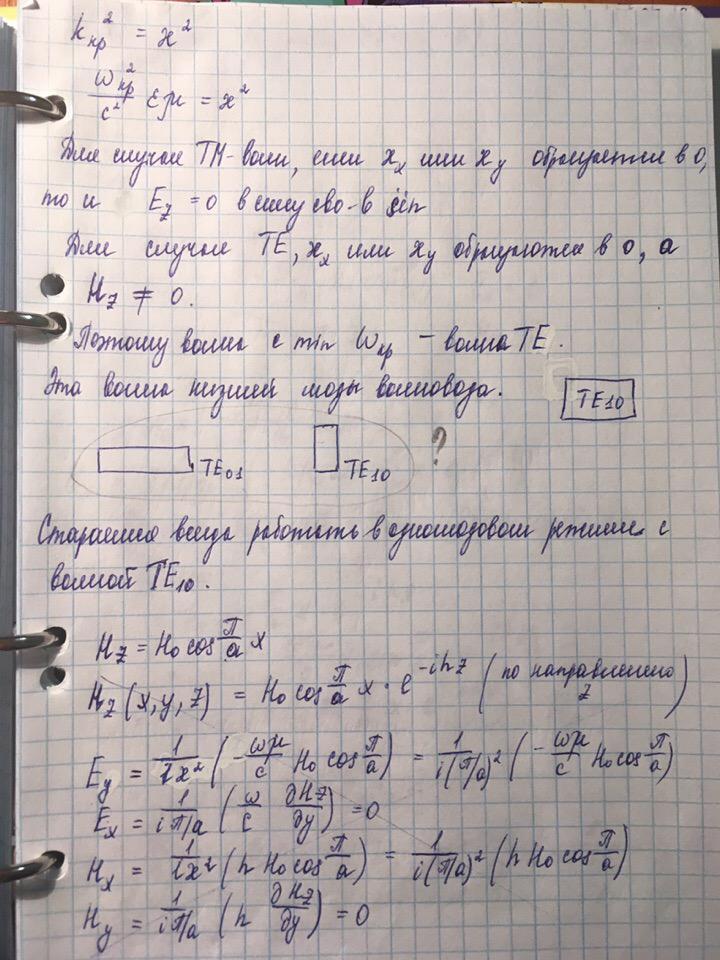 k²кр = ϰ²
ω²кр/c² εμ = ϰ²
Для случая TM-волн, если ϰx или ϰy обращается в 0,
то и Ez = 0 в силу св-в sin
Для случая TE, ϰx или ϰy обращаются в 0, а
Hz ≠ 0.
Поэтому волна с min ωкр – волна TE.
Эта волна низшей моды волновода. TE10
TE01 TE10 ?
Стараемся всегда работать в одномодовом режиме с
волной TE10.
Hz = H0 cos π/a x
Hz(x, y, z) = H0 cos π/a x · e^(-ihz) (по направлению z)
Ey = 1/iϰ² (-ωμ/c H0 cos π/a) = 1/i(π/a)² (-ωμ/c H0 cos π/a)
Ex = 1/iπ/a (ω/c ∂Hz/∂y) = 0
Hx = 1/iϰ² (h H0 cos π/a) = 1/i(π/a)² (h H0 cos π/a)
Hy = 1/iπ/a (h ∂Hz/∂y) = 0